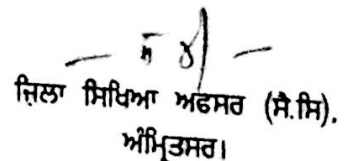 ਜ਼ਿਲਾ ਸਿਖਿਆ ਅਫਸਰ (ਸੈ.ਸਿ).
ਅੰਮ੍ਰਿਤਸਰ।